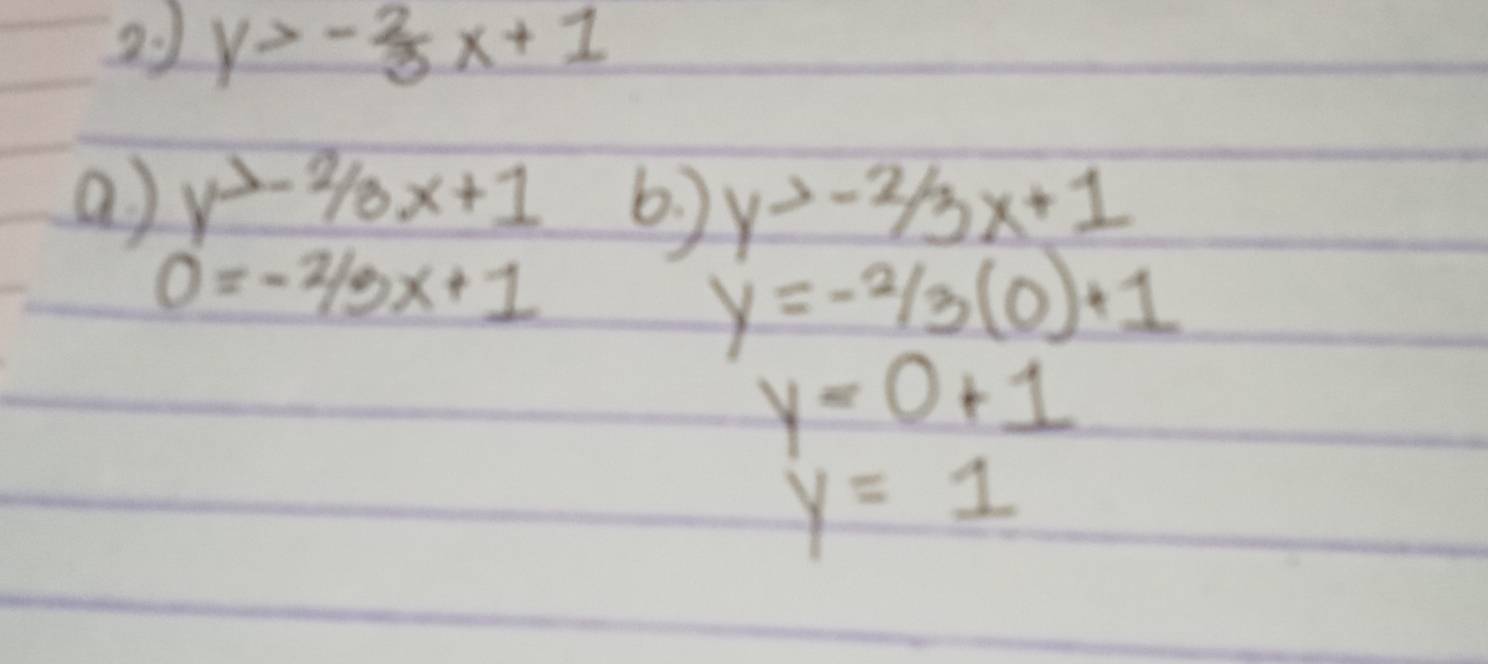 2.) y > -2/3 x + 1
a.) y > -2/3x + 1
0 = -2/3x + 1
b.) y > -2/3x + 1
y = -2/3(0) + 1
y = 0 + 1
y = 1